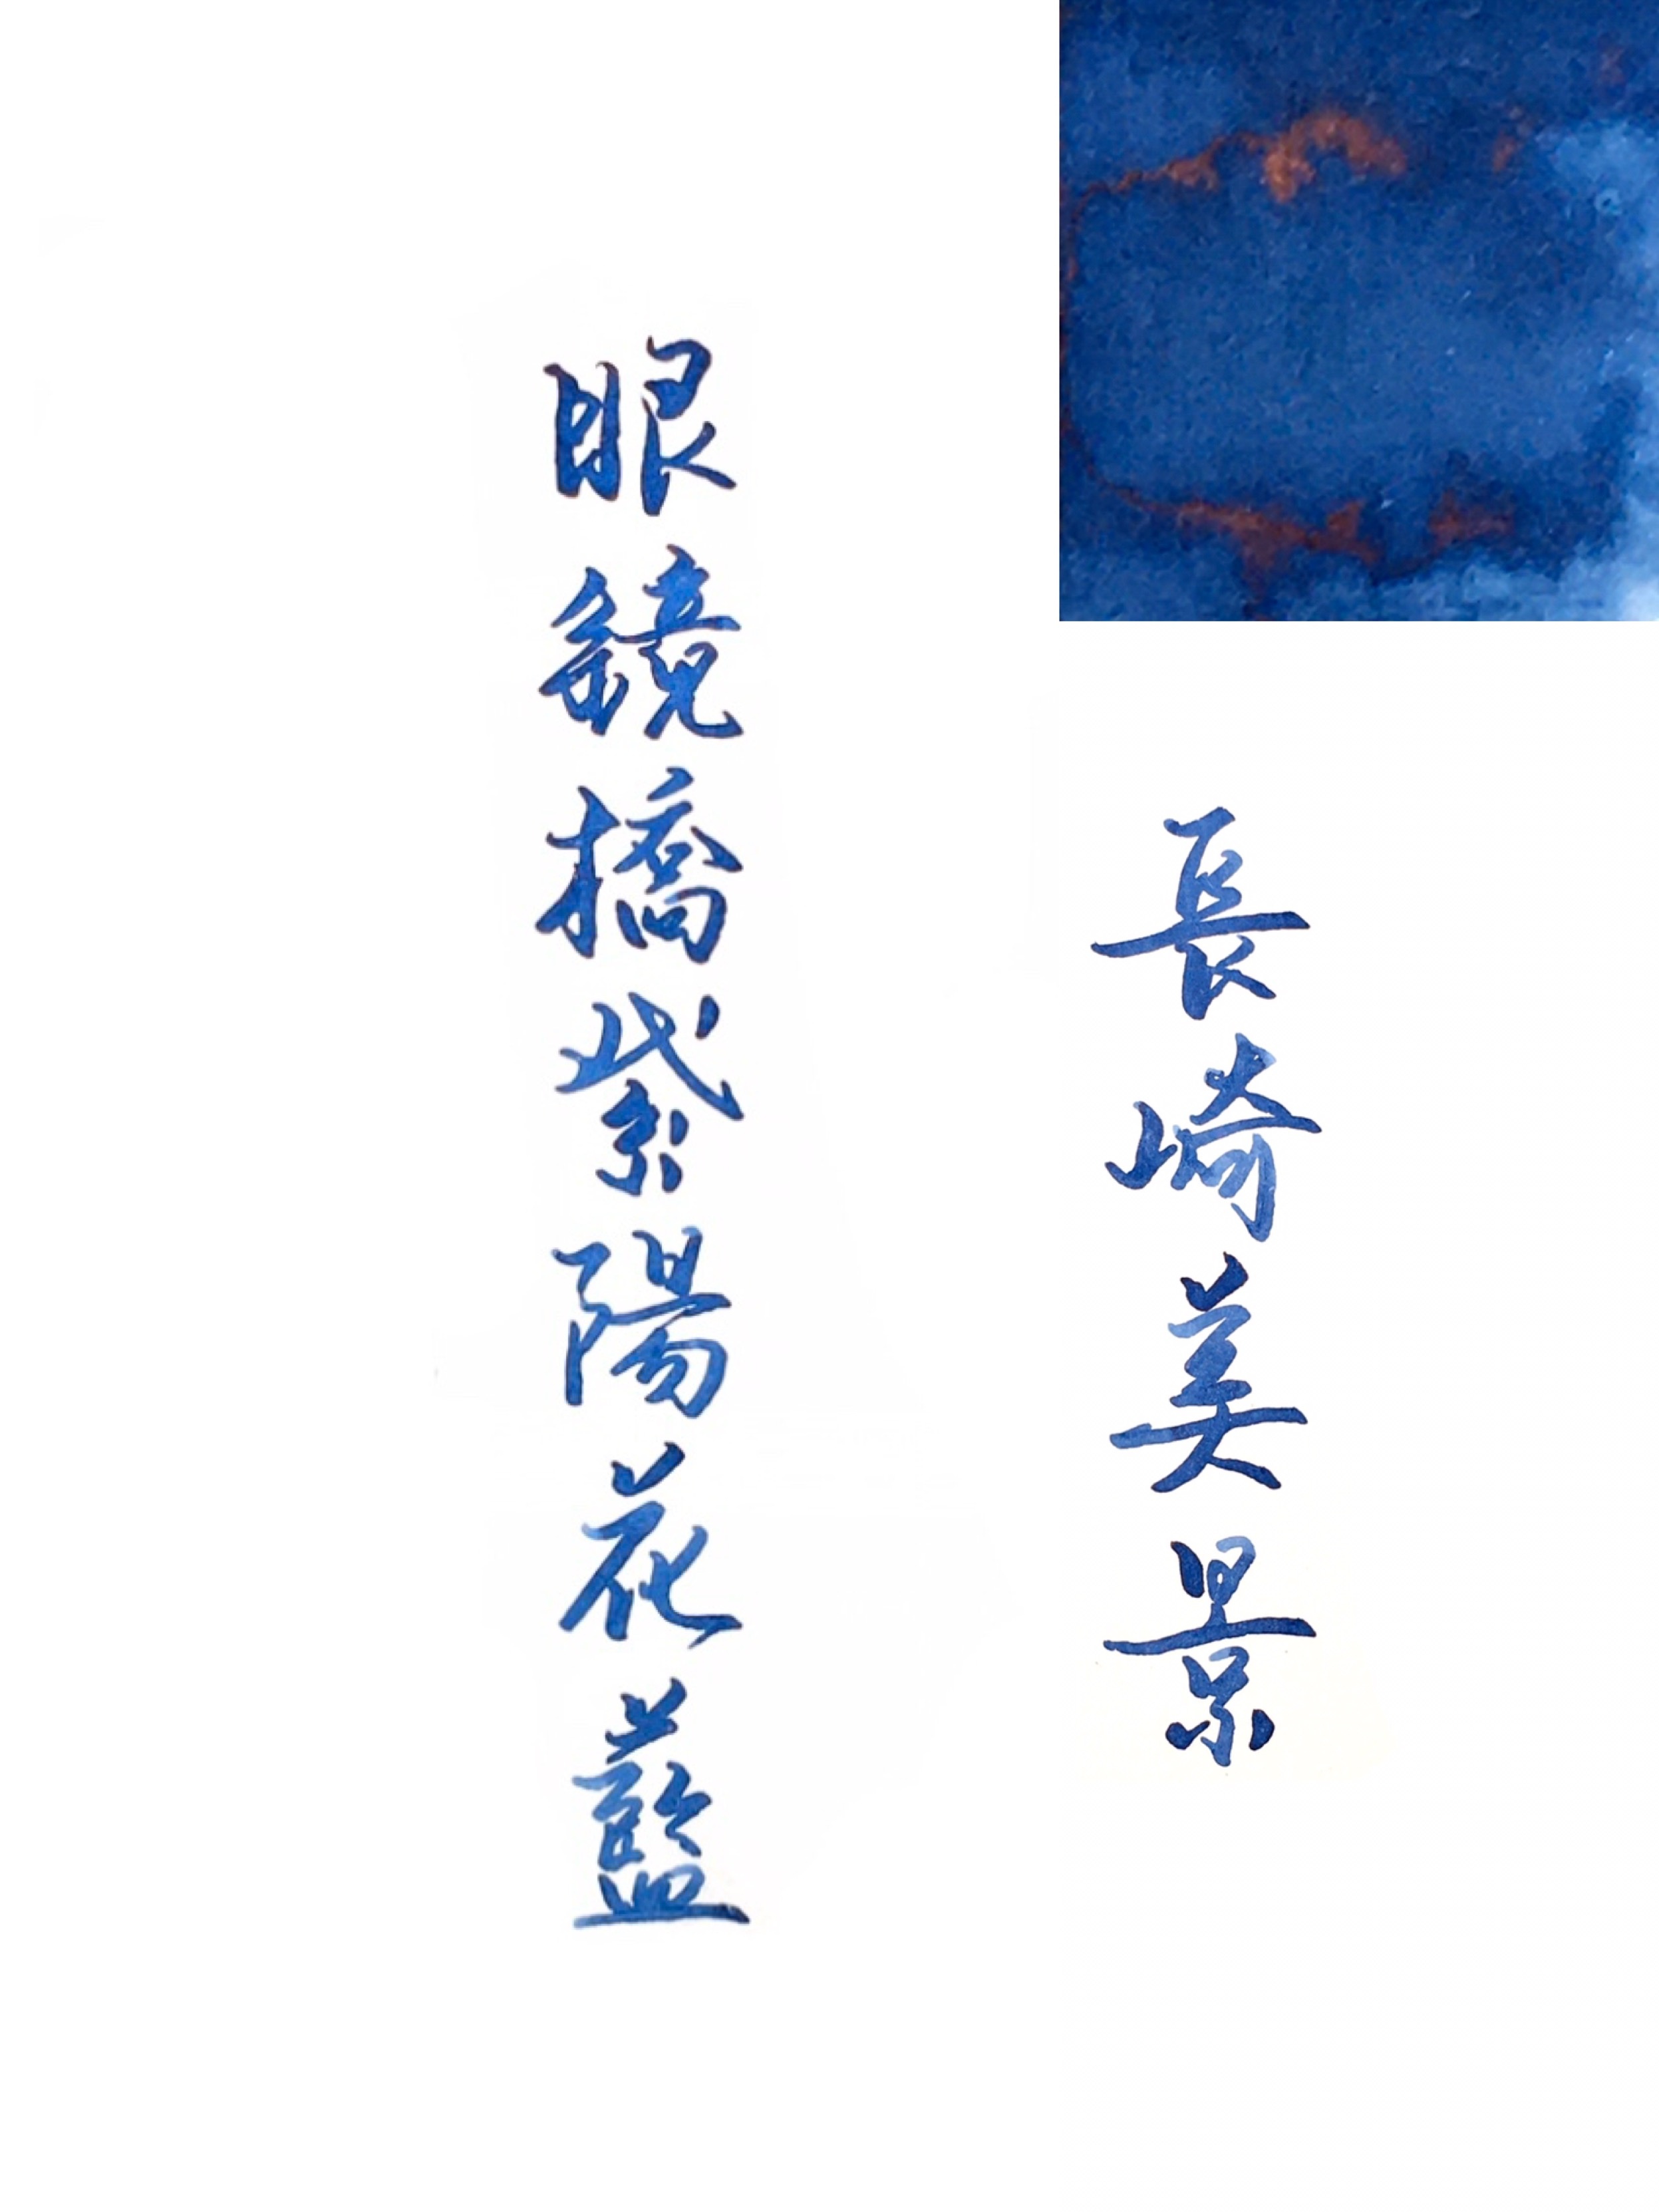 長崎美景
眼鏡橋紫陽花藍